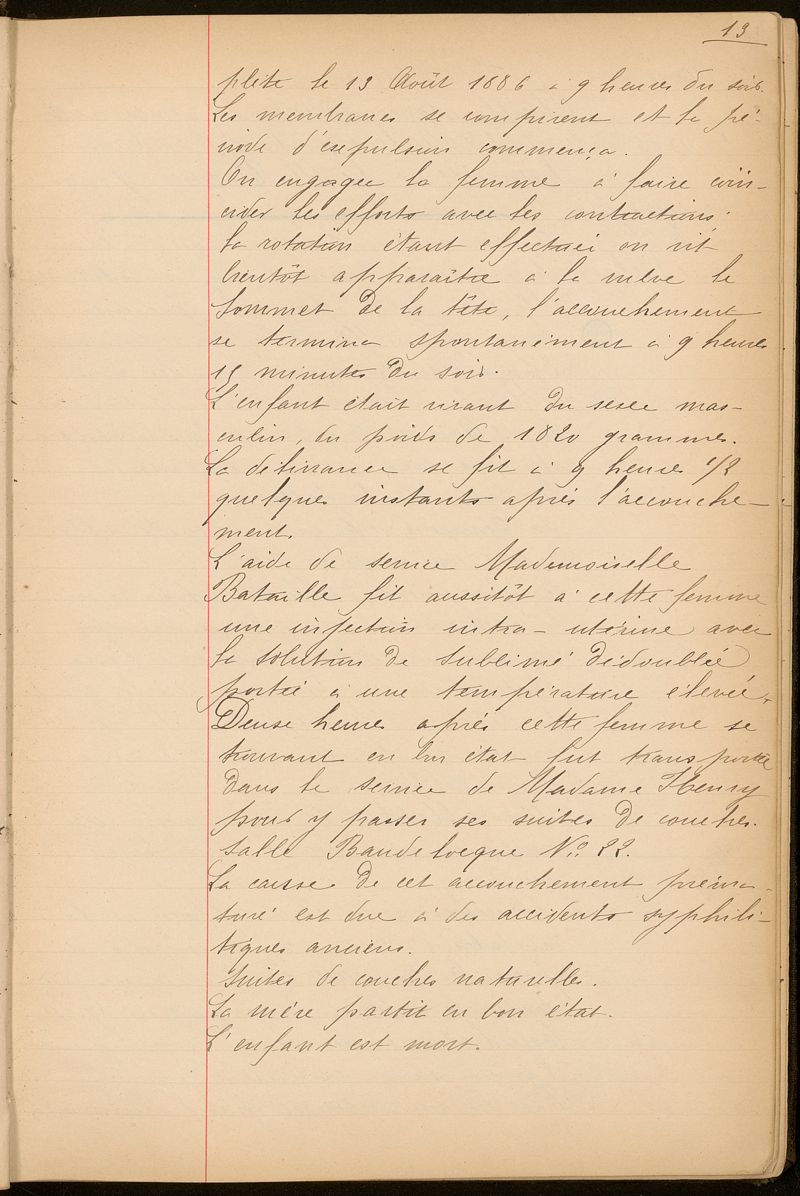 13
plète le 13 Août 1886 à 9 heures du soir.
Les membranes se rompirent et la pé-
riode d'expulsion commença.
On engagea la femme à faire coïn-
cider les efforts avec les contractions.
La rotation étant effectuée on vit
bientôt apparaître à la vulve le
sommet de la tête, l'accouchement
se termina spontanément à 9 heures
15 minutes du soir.
L'enfant était vivant du sexe mas-
culin, du poids de 1820 grammes.
La délivrance se fit à 9 heures 1/2
quelques instants après l'accouche-
ment.
L'aide de service Mademoiselle
Bataille fit aussitôt à cette femme
une injection intra-utérine avec
la solution de sublimé dédoublée
portée à une température élevée.
Deuxe heures après cette femme se
trouvant en bon état fut transportée
dans le service de Madame Henry
pour y passer ses suites de couches.
Salle Baudelocque No 22.
La cause de cet accouchement préma-
turé est due à des accidents syphili-
tiques anciens.
Suites de couches naturelles.
La mère partit en bon état.
L'enfant est mort.